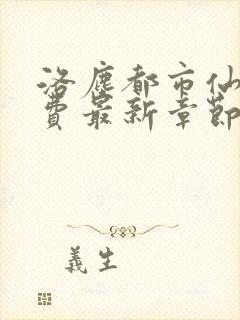 洛鹿都市仙
費最新章節
義生